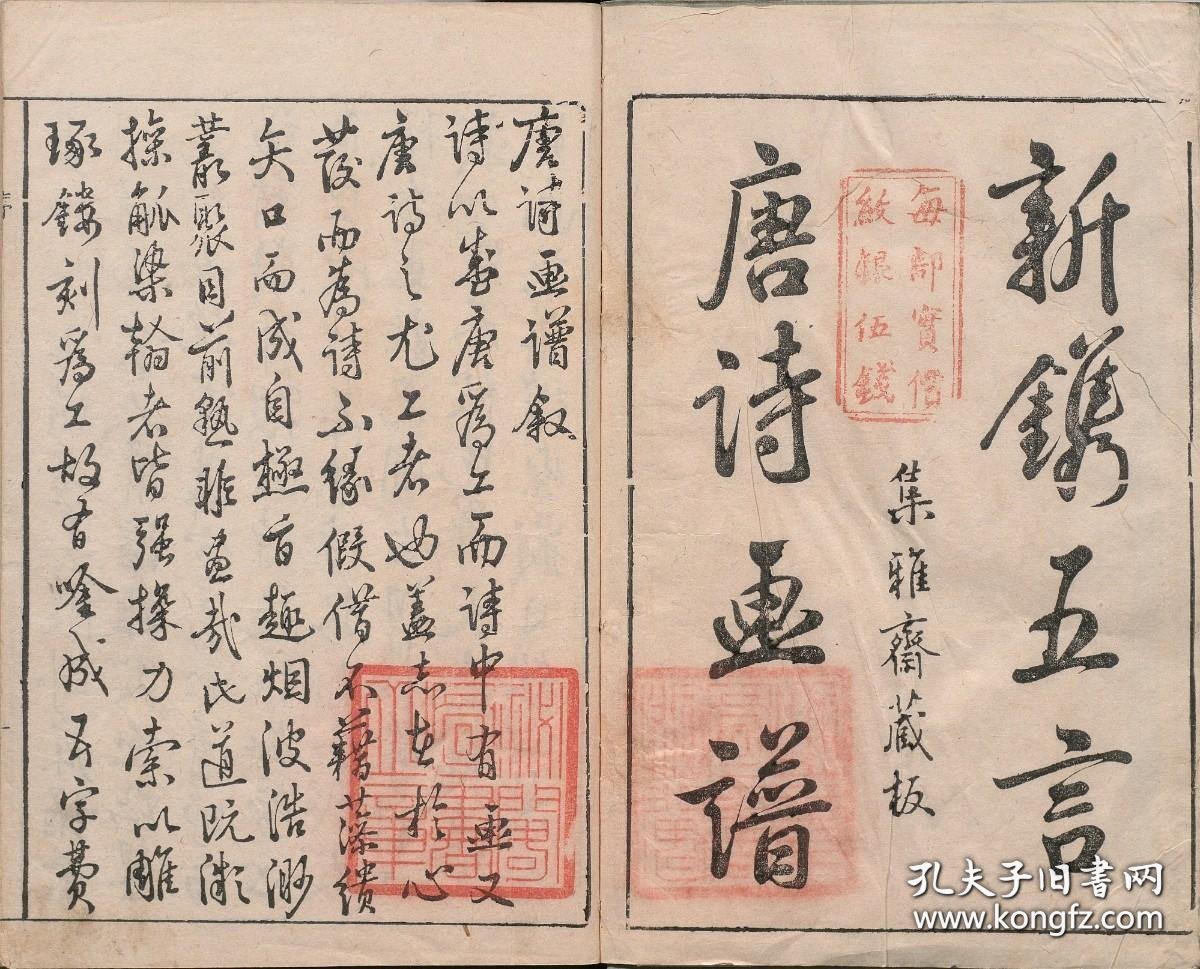 新鐫五言
每部實價
紋銀伍錢
集雅齋藏板
唐詩畫譜
唐詩畫譜叙
詩以盛唐爲工而詩中有畫又
唐詩之尤工者也蓋志在於心
發而為詩不緣假借不藉藻繢
矢口而成自極旨趣烟波浩渺
叢聚目前孰非畫哉道既
操觚染翰者皆強操力索以雕
琢鏤刻爲工故有吟成五字費
序
孔夫子旧书网
www.kongfz.com